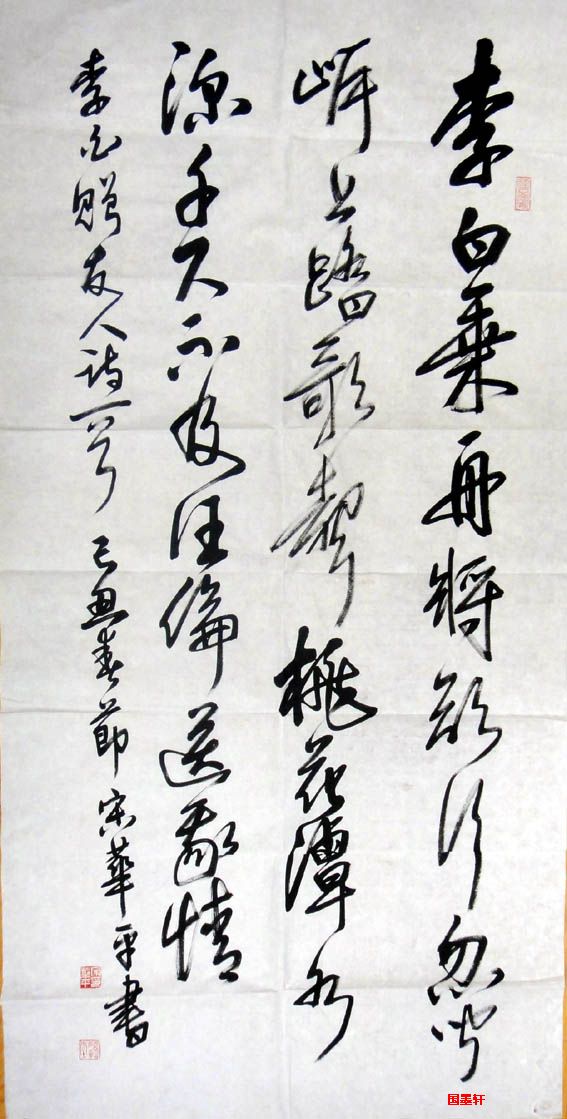 李白乘舟将欲行忽闻
岸上踏歌声桃花潭水
深千尺不及汪倫送我情
李白赠友人诗一首 己丑春節 宋華平書
国墨轩